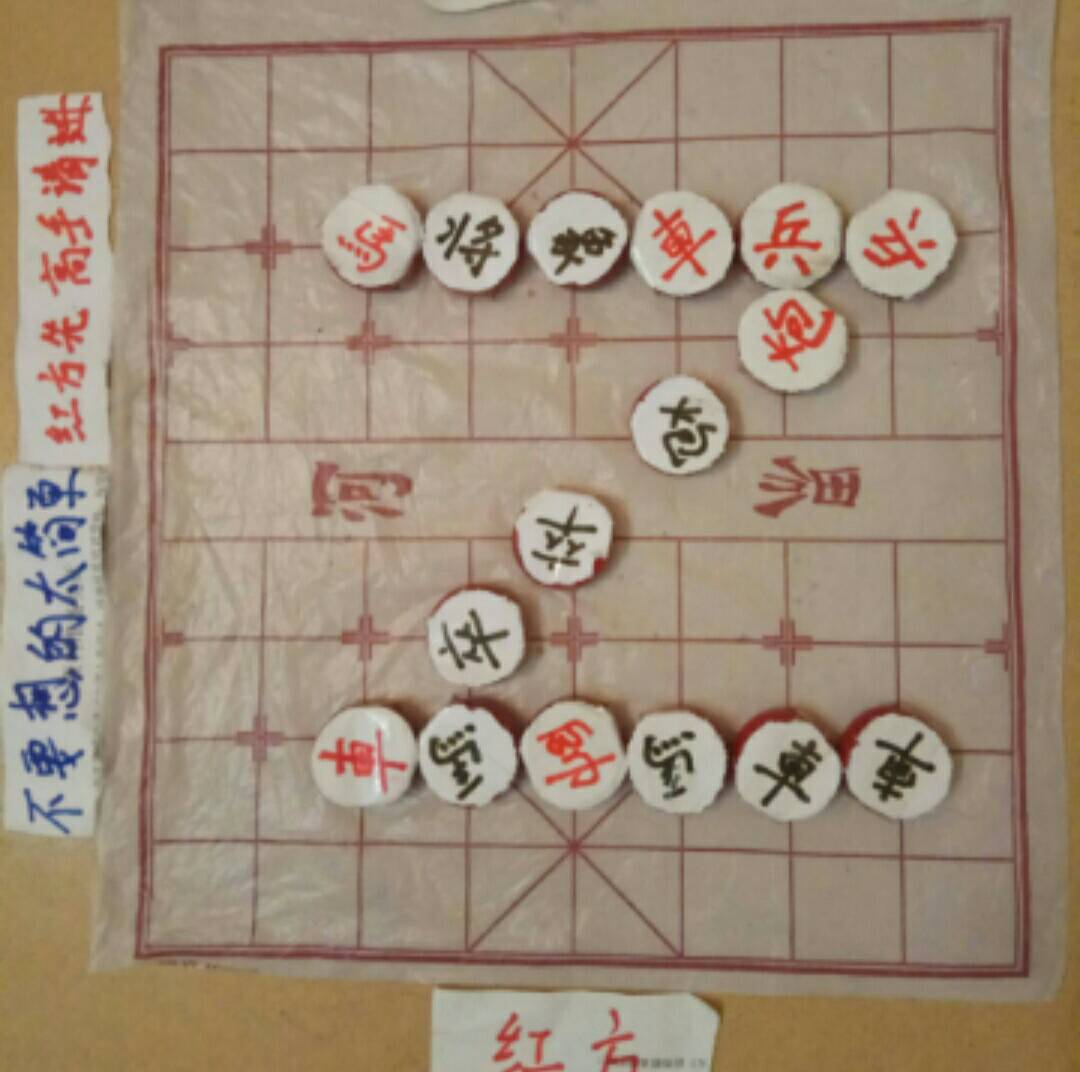 红方先 高手请进
不要想的太简单
馬 将 象 車 兵 兵
炮
炮
卒
卒
車 馬 帥 馬 車 車
河 界
红方